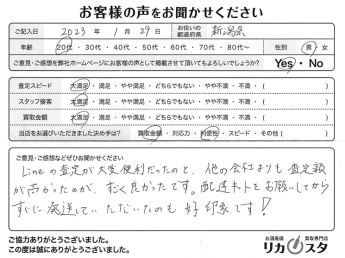 お客様の声をお聞かせください
ご記入日 2023年 1月 29日 お住いの都道府県 新潟県
年齢 20代・30代・40代・50代・60代・70代・80代〜 性別 男・女
ご意見・ご感想を弊社ホームページにお客様の声として掲載させて頂いてもよろしいでしょうか? Yes・No
査定スピード 大満足・満足・やや満足・どちらでもない・やや不満・不満・( )
スタッフ接客 大満足・満足・やや満足・どちらでもない・やや不満・不満・( )
買取金額 大満足・満足・やや満足・どちらでもない・やや不満・不満・( )
当店をお選びいただきました決め手は? 買取金額・対応力・利便性・スピード・その他( )
ご意見・ご感想などぜひお聞かせください
Lineの査定が大変便利だったのと、他の会社よりも査定額
が高かったのが、すごく良かったです。配送キットをお願いしてから
すぐに発送していただいたのも好印象です!
ご協力ありがとうございました。
この度は誠にありがとうございました。
お酒高価買取専門店
リカスタ